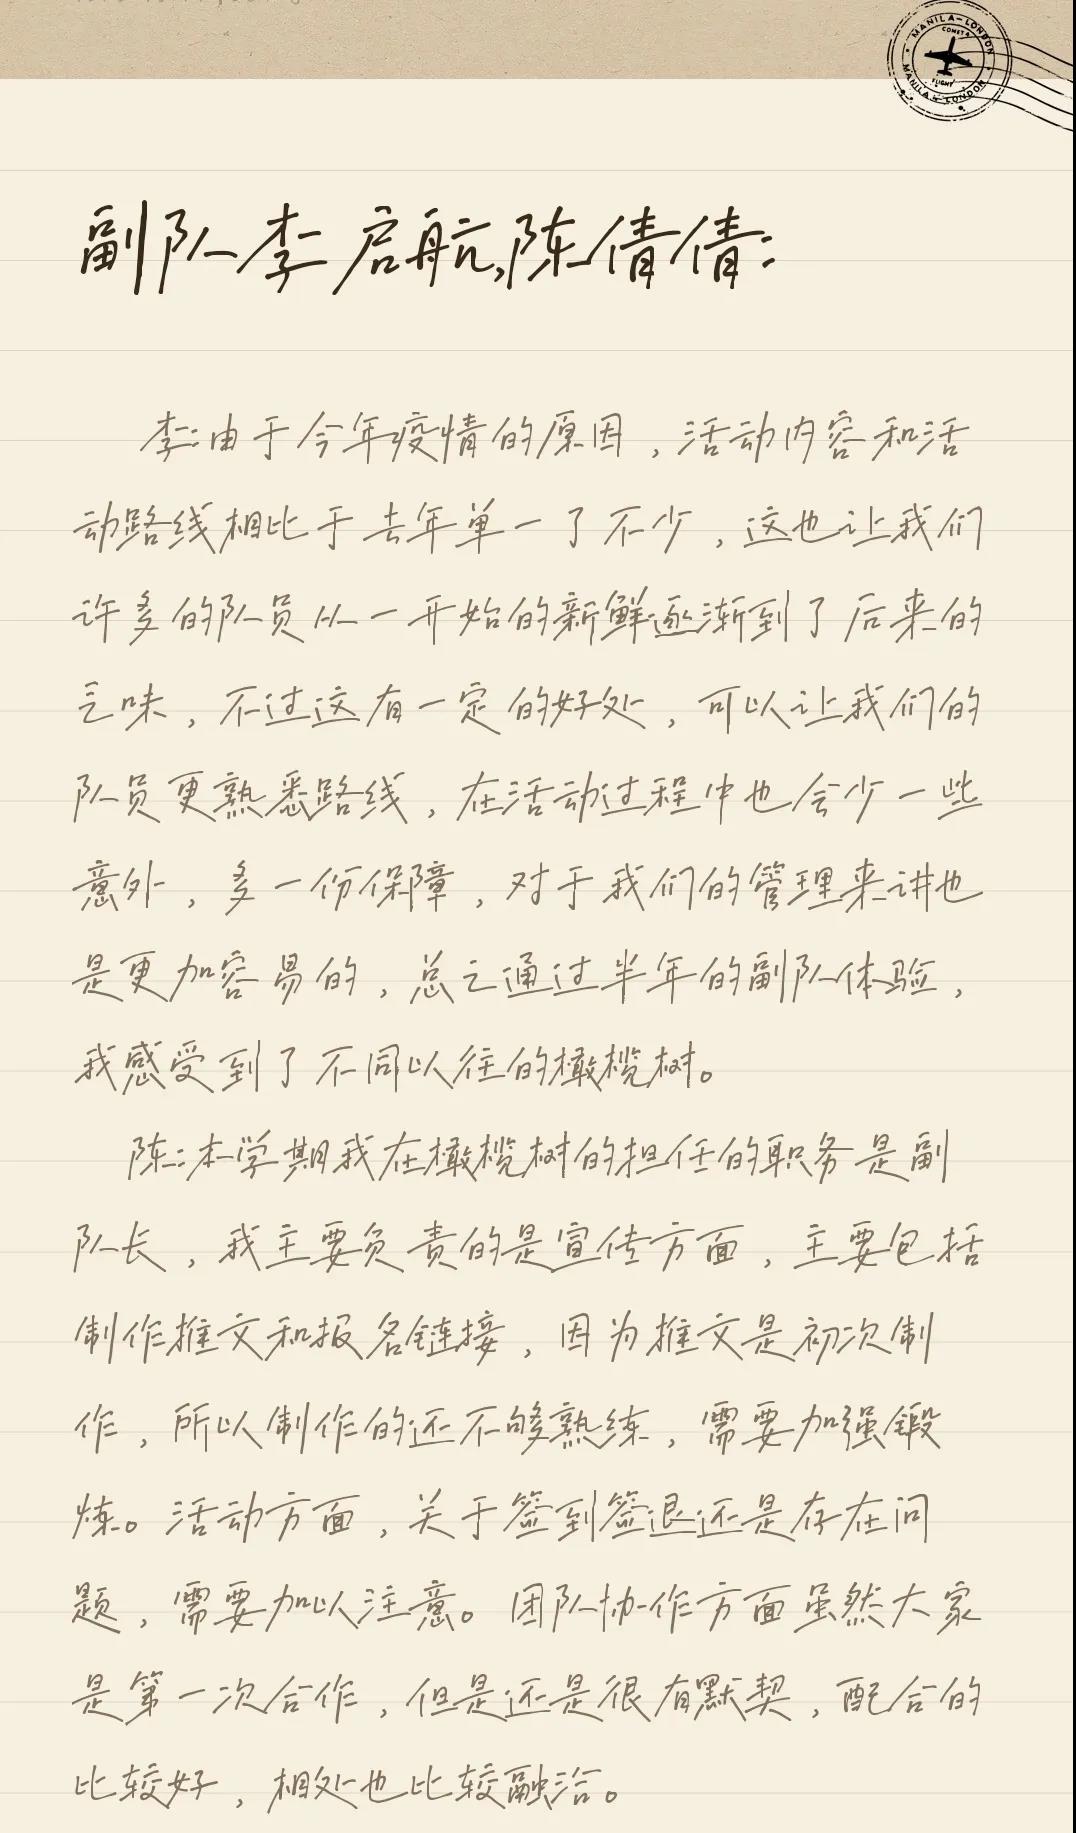 MANILA-LONDON
COMET 4
FLIGHT
MANILA & LONDON
副队李启航,陈倩倩:
李:由于今年疫情的原因，活动内容和活
动路线相比于去年单一了不少，这也让我们
许多的队员从一开始的新鲜逐渐到了后来的
乏味，不过这有一定的好处，可以让我们的
队员更熟悉路线，在活动过程中也会少一些
意外，多一份保障，对于我们的管理来讲也
是更加容易的，总之通过半年的副队体验，
我感受到了不同以往的橄榄树。
陈:本学期我在橄榄树的担任的职务是副
队长，我主要负责的是宣传方面，主要包括
制作推文和报名链接，因为推文是初次制
作，所以制作的还不够熟练，需要加强锻
炼。活动方面，关于签到签退还是存在问
题，需要加以注意。团队协作方面虽然大家
是第一次合作，但是还是很有默契，配合的
比较好，相处也比较融洽。